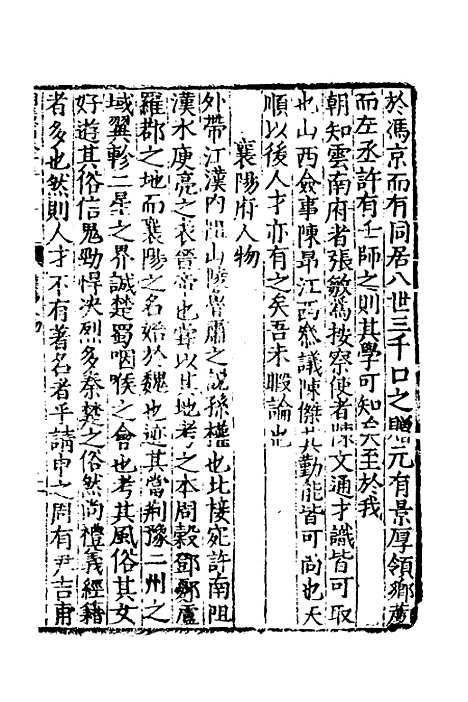 於馮京而有同居八世三千口之贈元有景厚領鄉薦
而左丞許有壬師之則其學可知矣至於我
朝知雲南府者張敏為按察使者陳文通才識皆可取
也山西僉事陳昂江西叅議陳傑其勤能皆可尚也天
順以後人才亦有之矣吾未暇論也
襄陽府人物
外帶江漢內阻山陵魯肅之說孫權也北接宛許南阻
漢水庾亮之表晉帝也甞以其地考之本周穀鄧鄾盧
羅郡之地而襄陽之名始於魏也迹其當荊豫二州之
域翼軫二星之界誠楚蜀咽喉之會也考其風俗其女
好遊其俗信鬼勁悍決烈多秦楚之俗然尚禮義經籍
者多也然則人才不有著名者乎請申之周有尹吉甫